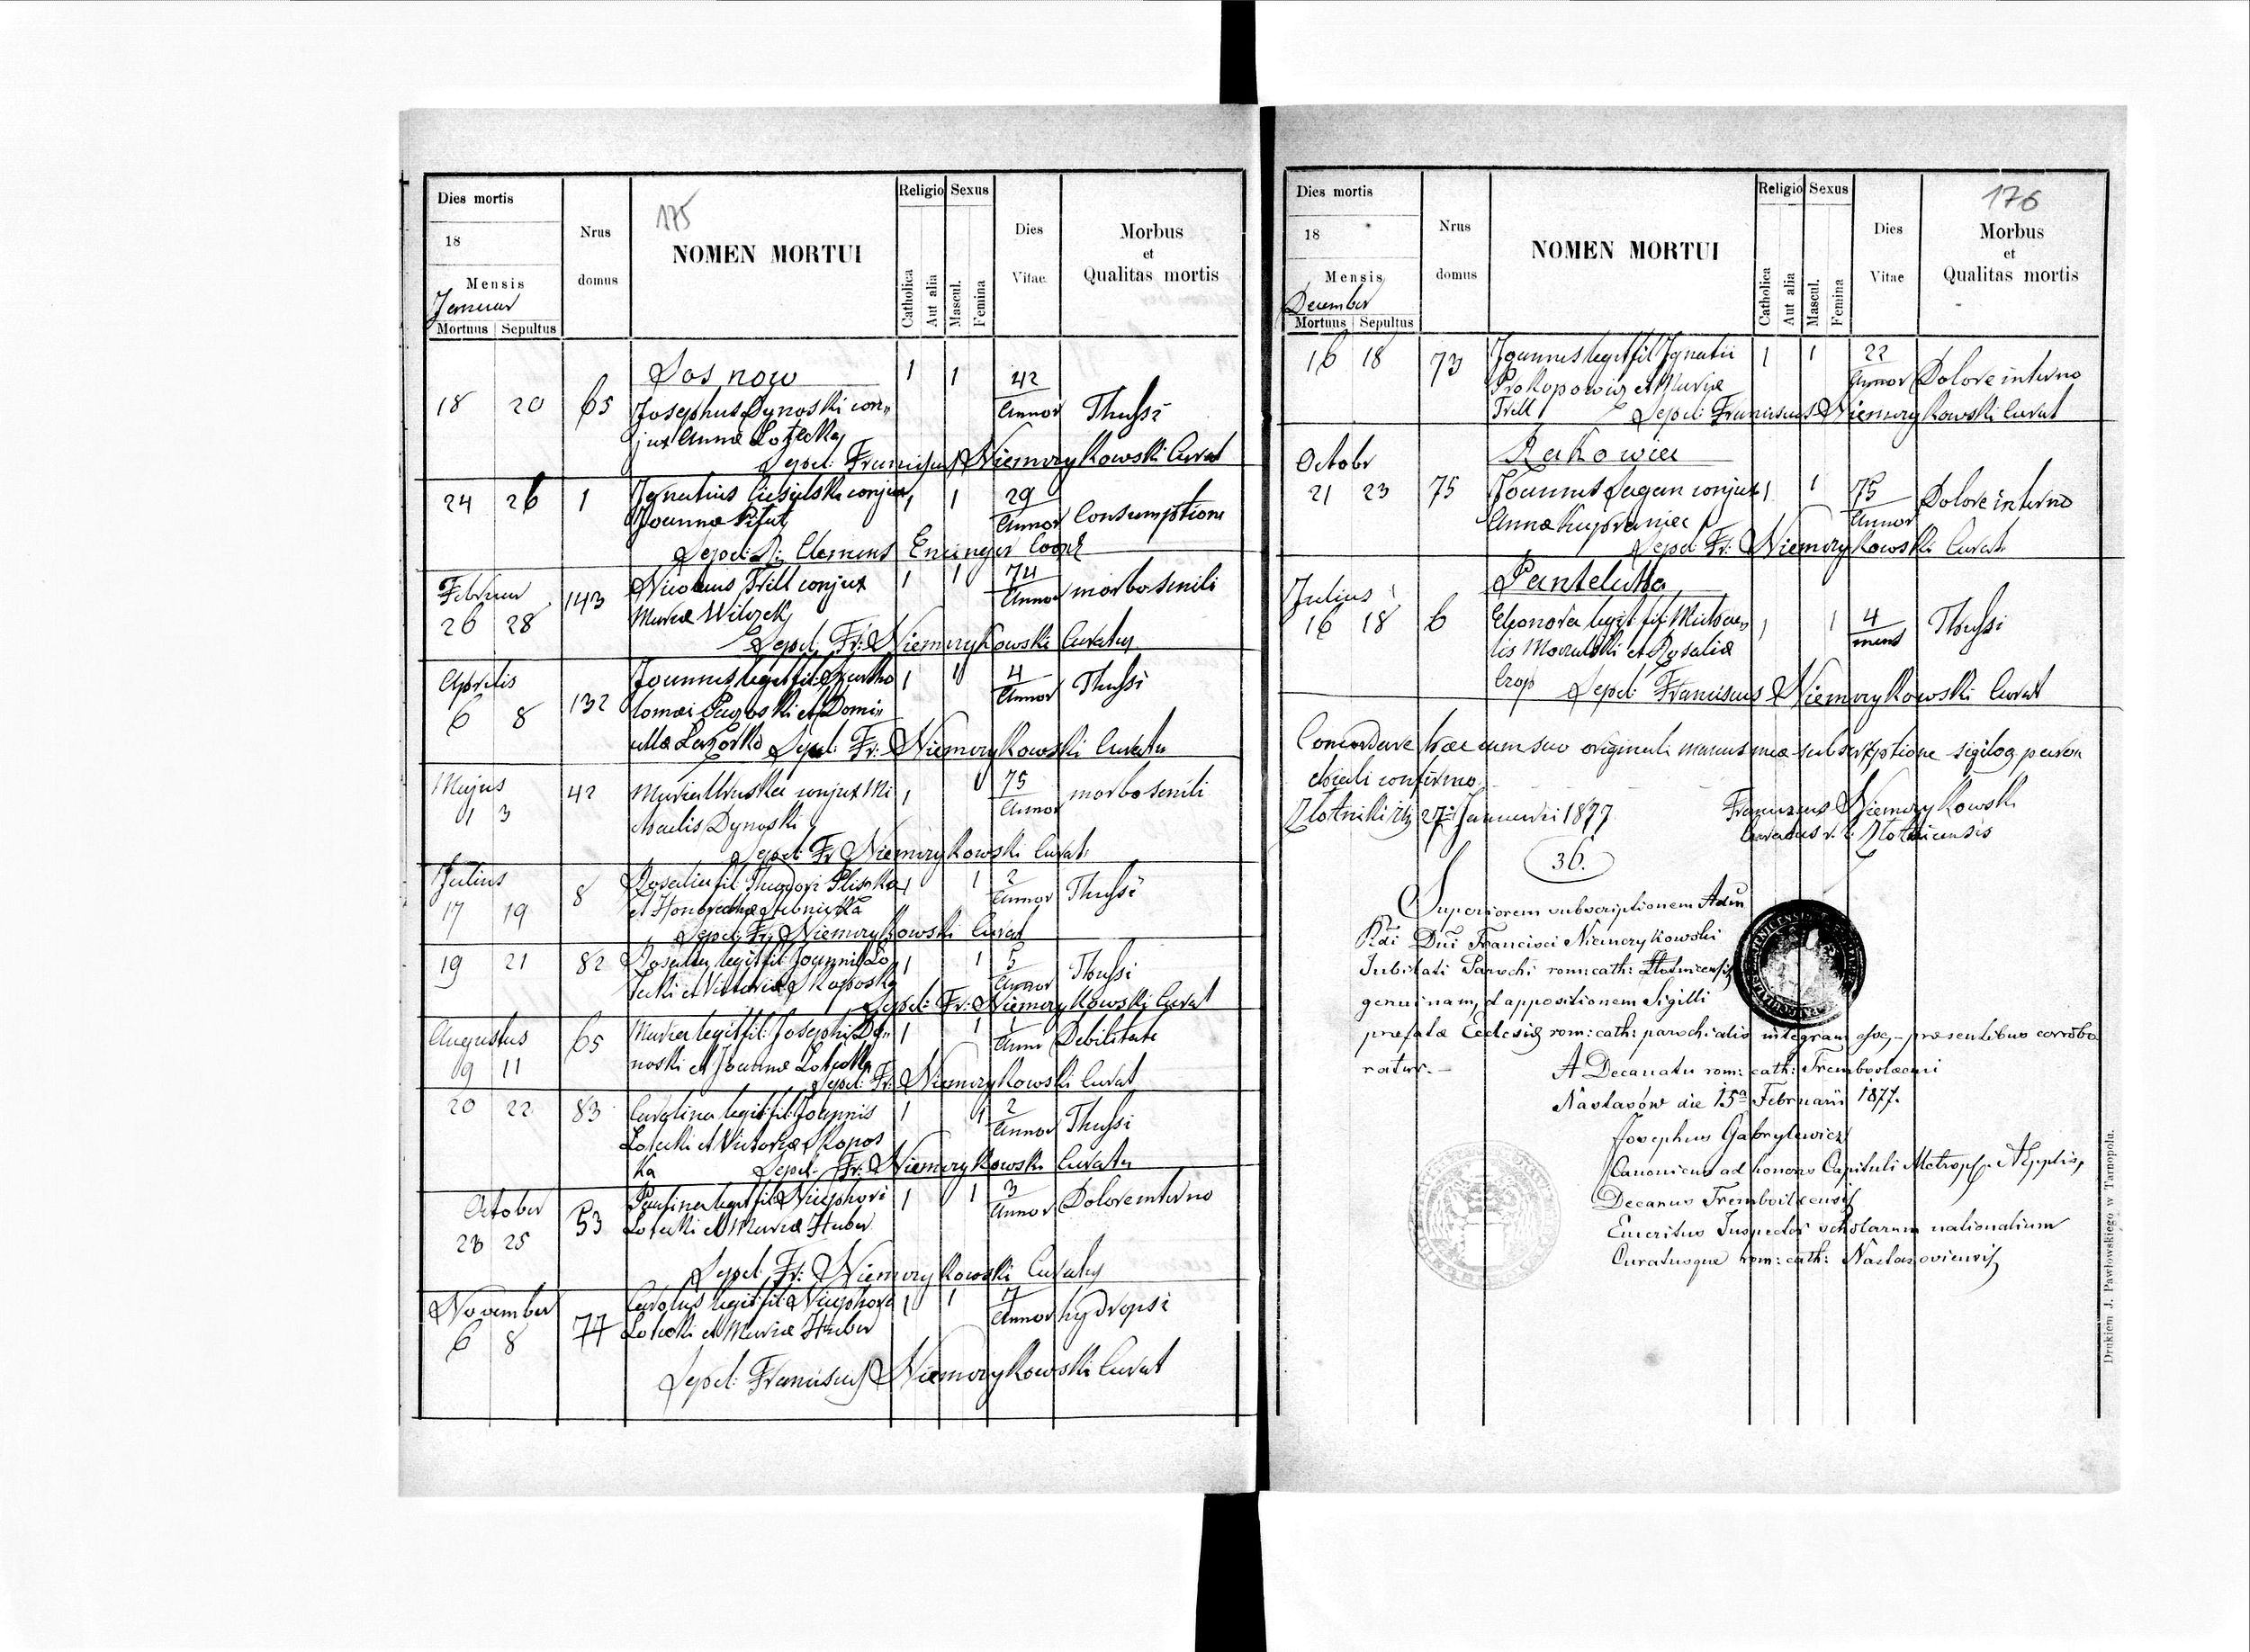 Dies mortis
18
Mensis
Januar
Mortuus Sepultus
Nrus
domus
175
NOMEN MORTUI
Religio Sexus
Catholica
Aut alia
Mascul.
Femina
Dies
Vitae
Morbus
et
Qualitas mortis
Sosnow
18 20 65 Josephus Dynoski con„ 1 1 42 Annor Thussi
jux Anna Lotecka
Sepel: Franciscus Niemczykowski Curat
24 26 1 Ignatius conjux 1 1 29 Annor Consumptione
Joanna
Sepel: R: Clemens Coop
Februar
26 28 143 Nicolaus Trill conjux 1 1 74 Annor morbo senili
Mariæ Wilczek
Sepel: Fr: Niemczykowski Curatus
Aprilis
6 8 132 Joannes legit fil: Bartho 1 1 4 Annor Thussi
lomæi et Domi„
Sepel: Fr: Niemczykowski Curatus
Majus
1 3 42 Maria conjux Mi 1 1 75 Annor morbo senili
chaelis Dynoski
Sepel: Fr Niemczykowski Curat:
Julius
17 19 8 Rosalia fil: Theodori Pliszka 1 1 2 Annor Thussi
et
Sepel: Fr: Niemczykowski Curat
19 21 82 Rosalia legit fil: Joannis Lo 1 1 5 Annor Thussi
tecki et Victoriæ Skoposka
Sepel: Fr: Niemczykowski Curat
Augustus
9 11 65 Maria legit fil: Josephi Dy„ 1 1 1 Anni Debilitate
noski et Joannæ Lotecka
Sepel: Fr: Niemczykowski Curat
20 22 83 Carolina legit: fil: Joannis 1 1 2 Annor Thussi
Lotecki et Victoriæ Skopos
ka Sepel: Fr: Niemczykowski Curatus
October
23 25 53 Paulina legit fil: Nicephori 1 1 3 Annor Dolore interno
Lotecki et Mariæ Huber
Sepel: Fr: Niemczykowski Curatus
November
6 8 77 Carolus legit: fil: Nicephori 1 1 7 Annor hydropsi
Lotecki et Mariæ Huber
Sepel: Franciscus Niemczykowski Curat
Dies mortis
18
Mensis
December
Mortuus Sepultus
Nrus
domus
NOMEN MORTUI
Religio Sexus
Catholica
Aut alia
Mascul.
Femina
Dies
Vitae
176
Morbus
et
Qualitas mortis
16 18 73 Joannes legit fil Ignatii 1 1 22 Annor Dolore interno
Prokopowicz et Mariæ
Trill Sepel: Franciscus Niemczykowski Curat
Octobr
Rakowiec
21 23 75 Joannes Sagan conjux 1 1 75 Annor Dolore interno
Annæ
Sepel: Fr: Niemczykowski Curat:
Julius
Pantelicha
16 18 6 Eleonora legit: fil: Michae„ 1 1 4 mens Thussi
lis et Rosaliæ
Crop Sepel: Franciscus Niemczykowski Curat
Concordare hæc cum suo originali manus meæ subscriptione sigiloq paro
chiali confirmo
Zlotniki 27 Januarii 1877 Franciscus Niemczykowski
Curatus r. l: Zlotnicensis
36.
Superiorem subscriptionem Adm
Rdi Dni Francisci Niemczykowski
Jubilati Parochi rom: cath: Zlotnicensis
genuinam, et appositionem Sigilli
prefatæ Ecclesiæ rom: cath: parochialis integram esse, – præsentibus corrobo
ratur. –
A Decanatu rom: cath: Trembovlensi
Nastasów die 15ª Februarii 1877.
Josephus Gabrylewicz
Canonicus ad honores Capituli Metropl:
Decanus Trembovlensis
Emeritus Inspector scholarum nationalium
Curatusque rom: cath: Nastasoviensis
Drukiem J. Pawłowskiego w Tarnopolu.